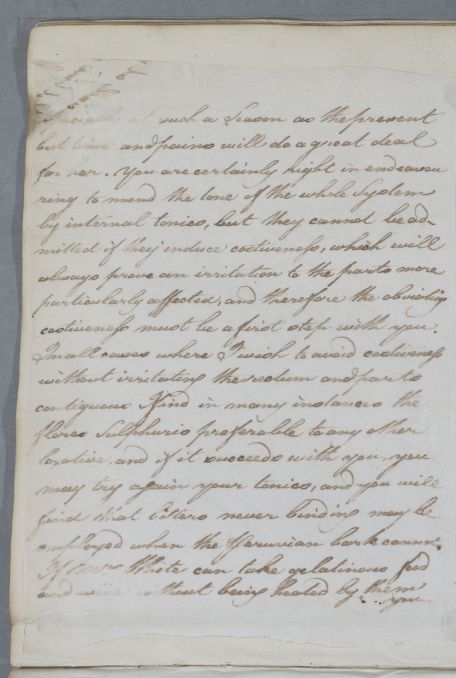 especially at such a Season as the present
but time and pains will do a great deal
for her. You are certainly right in endeavou
ring to mend the tone of the whole System
by internal tonics, but they cannot be ad-
mitted if they induce costiveness, which will
always prove an irritation to the parts more
particularly affected, and therefore the obviating
costiveness must be a first step with you.
In all cases where I wish to avoid costiveness
without irritating the rectum and parts
contiguous I find in many instances the
flores Sulphuris preferable to any other
laxative, and if it succeeds with you, you
may try again your tonics, and you will
find that bitters never binding may be
employed when the Peruvian bark cannot.
If Mrs White can take gelatinous food
and wine without being heated by them
you